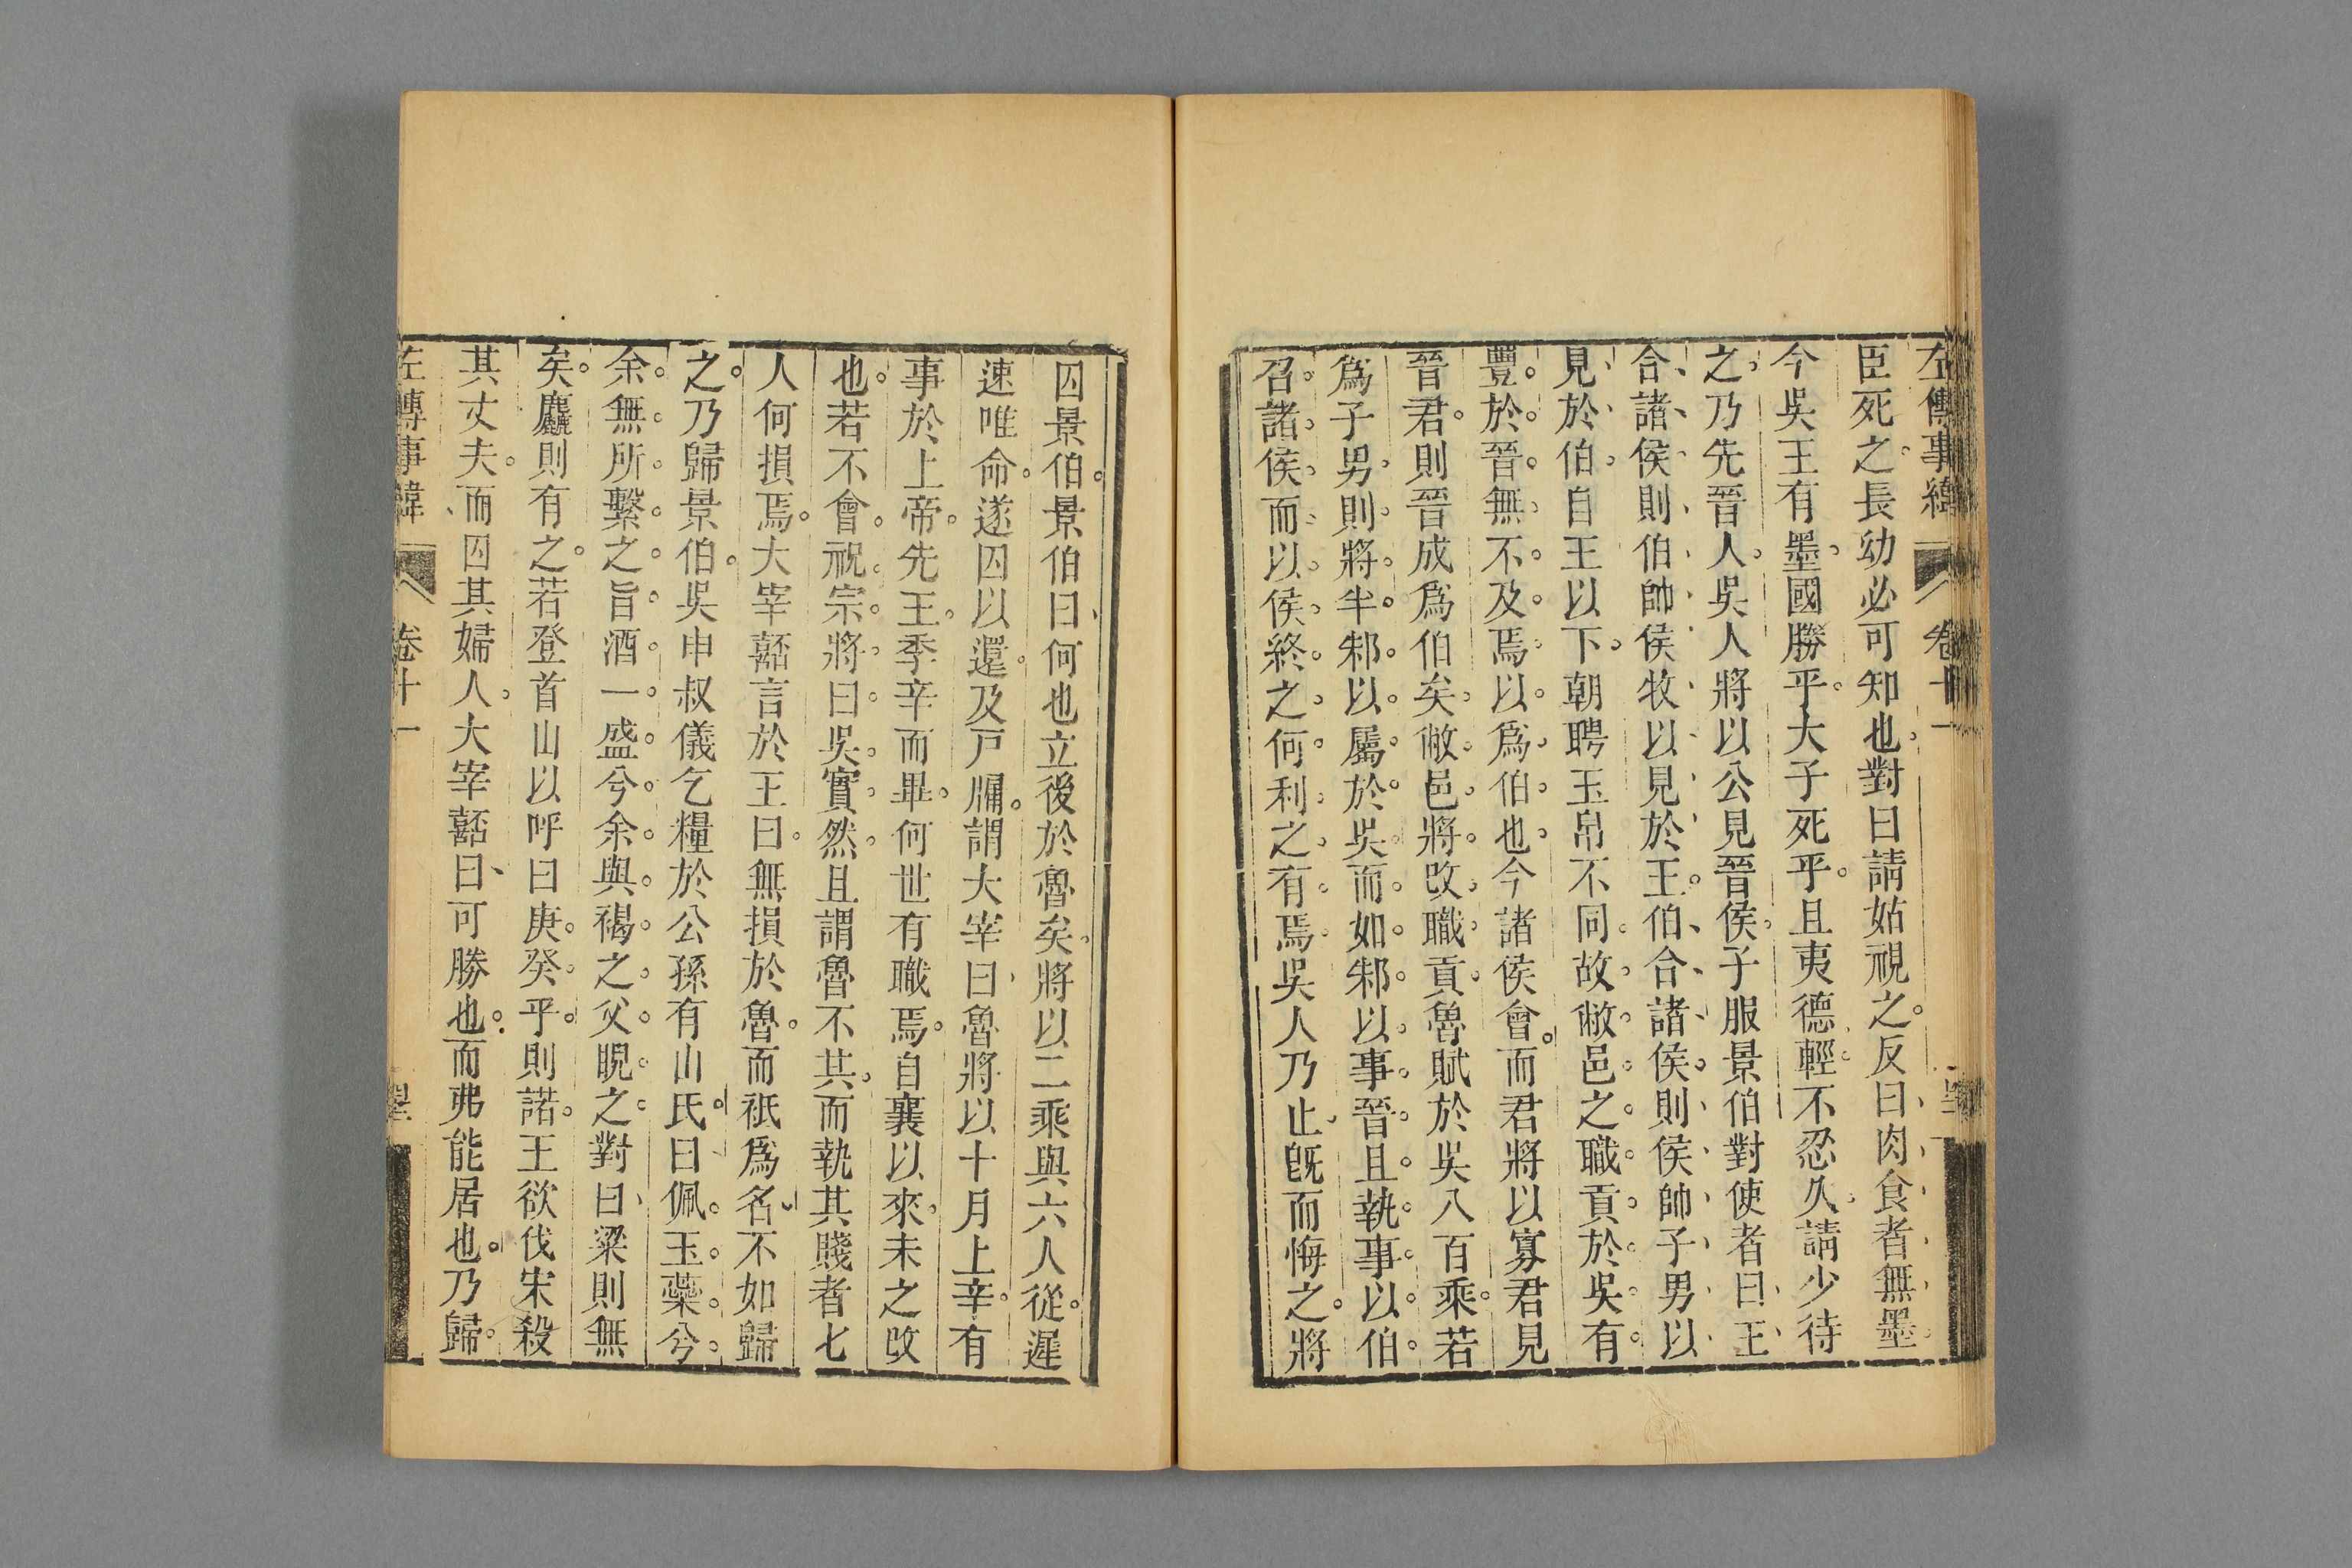 左傳事緯 卷十一
臣死之長幼必可知也對曰請姑視之反曰肉食者無墨
今吳王有墨國勝乎大子死乎且夷德輕不忍久請少待
之乃先晉人吳人將以公見晉侯子服景伯對使者曰王
合諸侯則伯帥侯牧以見於王伯合諸侯則侯帥子男以
見於伯自王以下朝聘玉帛不同故敝邑之職貢於吳有
豐於晉無不及焉以爲伯也今諸侯會而君將以寡君見
晉君則晉成爲伯矣敝邑將改職貢魯賦於吳八百乘若
爲子男則將半邾以屬於吳而如邾以事晉且執事以伯
召諸侯而以侯終之何利之有焉吳人乃止旣而悔之將
囚景伯景伯曰何也立後於魯矣將以二乘與六人從遲
速唯命遂囚以還及戸牖謂大宰曰魯將以十月上辛有
事於上帝先王季辛而畢何世有職焉自襄以來未之改
也若不會祝宗將曰吳實然且謂魯不共而執其賤者七
人何損焉大宰嚭言於王曰無損於魯而祇爲名不如歸
之乃歸景伯吳申叔儀乞糧於公孫有山氏曰佩玉蘂兮
余無所繫之旨酒一盛兮余與褐之父睨之對曰粱則無
矣麤則有之若登首山以呼曰庚癸乎則諾王欲伐宋殺
其丈夫而囚其婦人大宰嚭曰可勝也而弗能居也乃歸
左傳事緯 卷十一